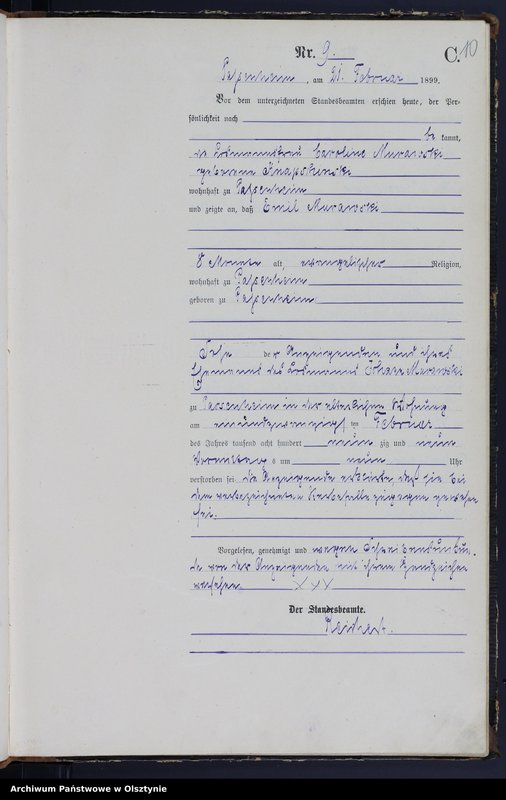 Nr. 9.
C. 10
Passenheim, am 21. Februar 1899.
Vor dem unterzeichneten Standesbeamten erschien heute, der Per-
sönlichkeit nach
be kannt,
die Losmannsfrau Caroline Murawski
geborene
wohnhaft zu Passenheim
und zeigte an, daß Emil Murawski
8 Monate alt, evangelischer Religion,
wohnhaft zu Passenheim
geboren zu Passenheim
Sohn der Anzeigenden und ihres
Ehemannes des Losmannes Murawski
zu Passenheim in der elterlichen Wohnung
am ten Februar
des Jahres tausend acht hundert neun zig und neun
Vormittags um neun Uhr
verstorben sei, die Anzeigende erklärte, daß sie bei
dem vorbezeichneten Sterbefalle zugegen gewesen
sei.
Vorgelesen, genehmigt und wegen Schreibensunkun-
de von der Anzeigenden mit ihrem Handzeichen
versehen. XXX
Der Standesbeamte.
Archiwum Państwowe w Olsztynie